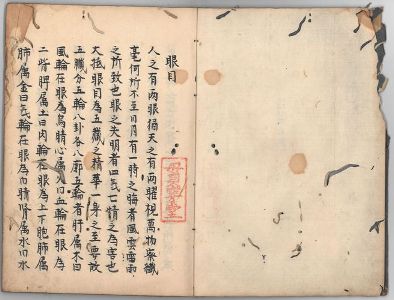 眼目
人之有兩眼猶天之有兩曜視萬物察纖
毫何所不至日月有一時之晦者風雲雷雨
之所致也眼之失明者四氣七情之為害也
大抵眼目為五臟之精華一身之至要故
五臟分五輪八卦名八廓五輪者肝属木曰
風輪在眼為烏睛心属火曰血輪在眼為
二眥脾属土曰肉輪在眼為上下胞肺属
肺属金曰氣輪在眼為白睛腎属水曰水